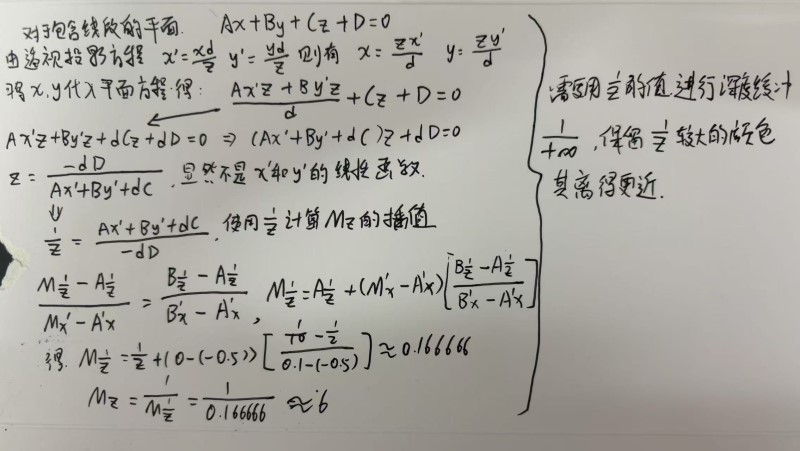 对于包含线段的平面. Ax+By+Cz+D=0
由透视投影方程 x'=xd/z y'=yd/z 则有 x=zx'/d y=zy'/d
将x,y代入平面方程得: (Ax'z+By'z)/d+Cz+D=0
Ax'z+By'z+dCz+dD=0 ⇒ (Ax'+By'+dC)z+dD=0
z=-dD/(Ax'+By'+dC), 显然不是x'和y'的线性函数.
⇓
1/z=(Ax'+By'+dC)/-dD, 使用1/z计算Mz的插值
(M1/z-A1/z)/(Mx'-A'x)=(B1/z-A1/z)/(B'x-A'x), M1/z=A1/z+(M'x-A'x)[(B1/z-A1/z)/(B'x-A'x)]
得. M1/z=1/2+(0-(-0.5))[(1/10-1/2)/(0.1-(-0.5))]≈0.166666
Mz=1/M1/z=1/0.166666≈6
需要用1/z的值进行深度缓冲
1/+∞, 保留1/z较大的颜色
其离得更近.